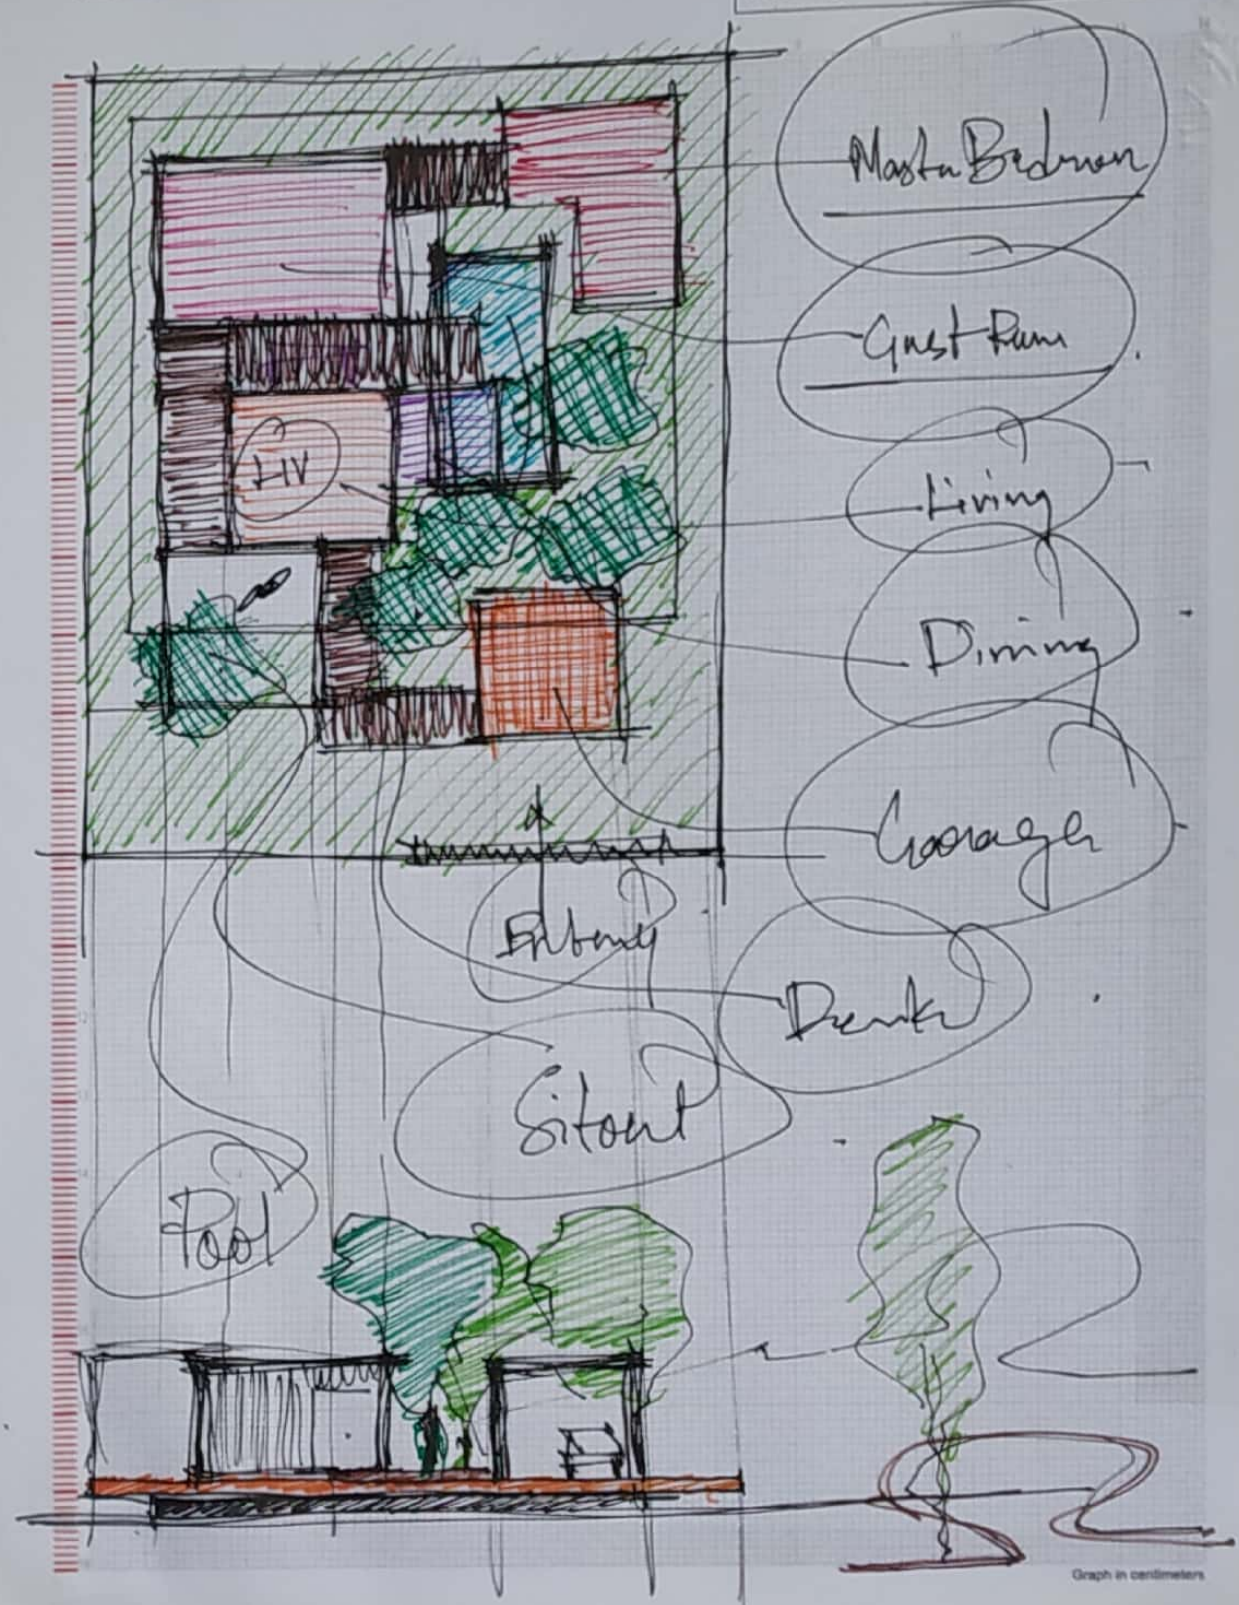 Master Bedroom
Guest Room
LIV
Living
Dining
Garage
Entry
Deck
Sitout
Pool
Graph in centimeters